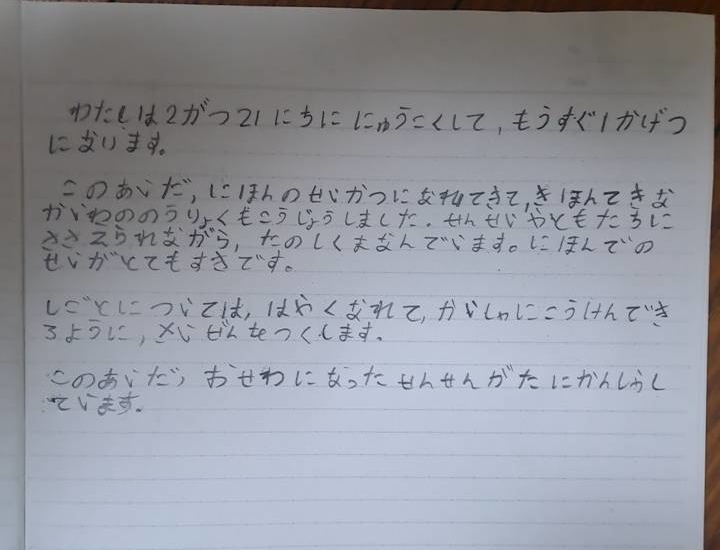 わたしは2がつ21にちに にゅうこくして, もうすぐ1かげつ
になります。
このあいだ, にほんのせいかつになれてきて, きほんてきな
かいわののうりょくもこうじょうしました. せんせいやともたちに
ささえられながら, たのしくまなんでいます。にほんでの
せいがとてもすきです。
しごとについては, はやくなれて, かいしゃにこうけんでき
るように, さいぜんをつくします。
このあいだ, おせわになったせんせんがたにかんしゃし
ています。